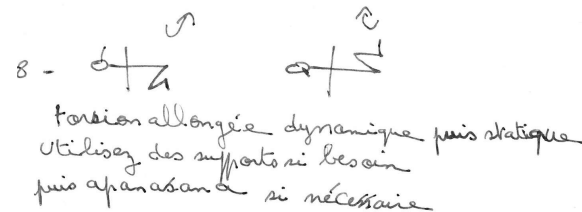 8 -
torsion allongée dynamique puis statique
Utilisez des supports si besoin
puis apanasana si nécessaire